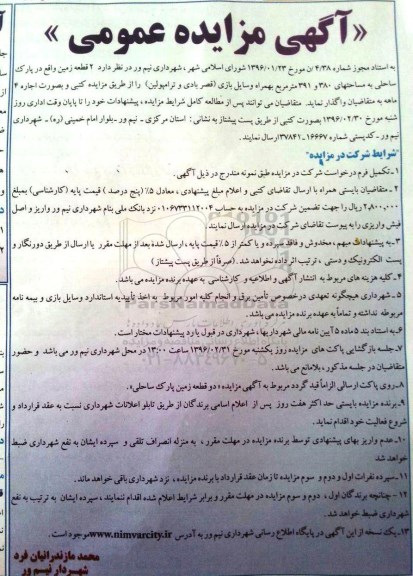 «آگهی مزایده عمومی»
به استناد مجوز شماره ۴/۳۸/ن مورخ ۱۳۹۶/۰۱/۲۳ شورای اسلامی شهر، شهرداری نیم ور در نظر دارد ۲ قطعه زمین واقع در پارک
ساحلی به مساحتهای ۳۸۰ و ۳۹۱ مترمربع بهمراه وسایل بازی (قصر بادی و ترامپولین) را از طریق مزایده کتبی و بصورت اجاره ۴
ماهه به متقاضیان واگذار نماید. متقاضیان می توانند پس از مطالعه کامل شرایط مزایده، پیشنهادات خود را تا پایان وقت اداری روز
شنبه مورخ ۱۳۹۶/۰۲/۳۰ بصورت کتبی از طریق پست پیشتاز به نشانی: استان مرکزی - نیم ور - بلوار امام خمینی (ره) - شهرداری
نیم ور - کدپستی شماره ۱۶۶۶۷-۳۷۸۴۱ ارسال نمایند.
"شرایط شرکت در مزایده"
۱- تکمیل فرم درخواست شرکت در مزایده طبق نمونه مندرج در ذیل آگهی.
۲- متقاضیان بایستی همراه با ارسال تقاضای کتبی و اعلام مبلغ پیشنهادی، معادل ۵٪ (پنج درصد) قیمت پایه (کارشناسی) بمبلغ
۲,۸۰۰,۰۰۰ ریال را جهت تضمین شرکت در مزایده به حساب ۰۱۰۶۷۳۳۱۱۲۰۰۴ نزد بانک ملی بنام شهرداری نیم ور واریز و اصل
فیش واریزی را به پیوست تقاضای شرکت در مزایده ارسال نمایند.
۳- به پیشنهادات مبهم، مخدوش و فاقد سپرده و یا کمتر از ۵٪ قیمت پایه، ارسال شده بعد از مهلت مقرر یا ارسال از طریق دورنگار و
پست الکترونیک و دستی، ترتیب اثر داده نخواهد شد. (صرفاً از طریق پست پیشتاز)
۴- کلیه هزینه های مربوط به انتشار آگهی و اطلاعیه و کارشناسی به عهده برنده مزایده می باشد.
۵- شهرداری هیچگونه تعهدی درخصوص تأمین برق و انجام کلیه امور مربوط به اخذ تأییدیه استاندارد وسایل بازی و بیمه نامه
مربوطه نداشته و تماماً به عهده برنده مزایده می باشد.
۶- به استناد بند ۵ ماده ۵ آیین نامه مالی شهرداریها، شهرداری در قبول یا رد پیشنهادات مختار است.
۷- جلسه بازگشایی پاکت های مزایده روز یکشنبه مورخ ۱۳۹۶/۰۲/۳۱ ساعت ۱۳:۰۰ در محل شهرداری نیم ور می باشد و حضور
متقاضیان در جلسه مذکور، بلامانع می باشد.
۸- روی پاکت ارسالی الزاماً قید گردد مربوط به آگهی مزایده «دو قطعه زمین پارک ساحلی».
۹- برنده مزایده بایستی حداکثر هفت روز پس از اعلام اسامی برندگان از طریق تابلو اعلانات شهرداری نسبت به عقد قرارداد و
شروع فعالیت خود اقدام نماید.
۱۰- عدم واریز بهای پیشنهادی توسط برنده مزایده در مهلت مقرر، به منزله انصراف تلقی و سپرده ایشان به نفع شهرداری ضبط
خواهد شد.
۱۱- سپرده نفرات اول و دوم و سوم مزایده تا زمان عقد قرارداد با برنده مزایده، نزد شهرداری باقی خواهد ماند.
۱۲- چنانچه برندگان اول، دوم و سوم مزایده در مهلت مقرر و برابر شرایط اعلام شده اقدام ننمایند، سپرده ایشان به ترتیب به نفع
شهرداری ضبط خواهد شد.
۱۳- یک نسخه از این آگهی در پایگاه اطلاع رسانی شهرداری نیم ور به آدرس www.nimvarcity.ir موجود است.
محمد مازندرانیان فرد
شهردار نیم ور